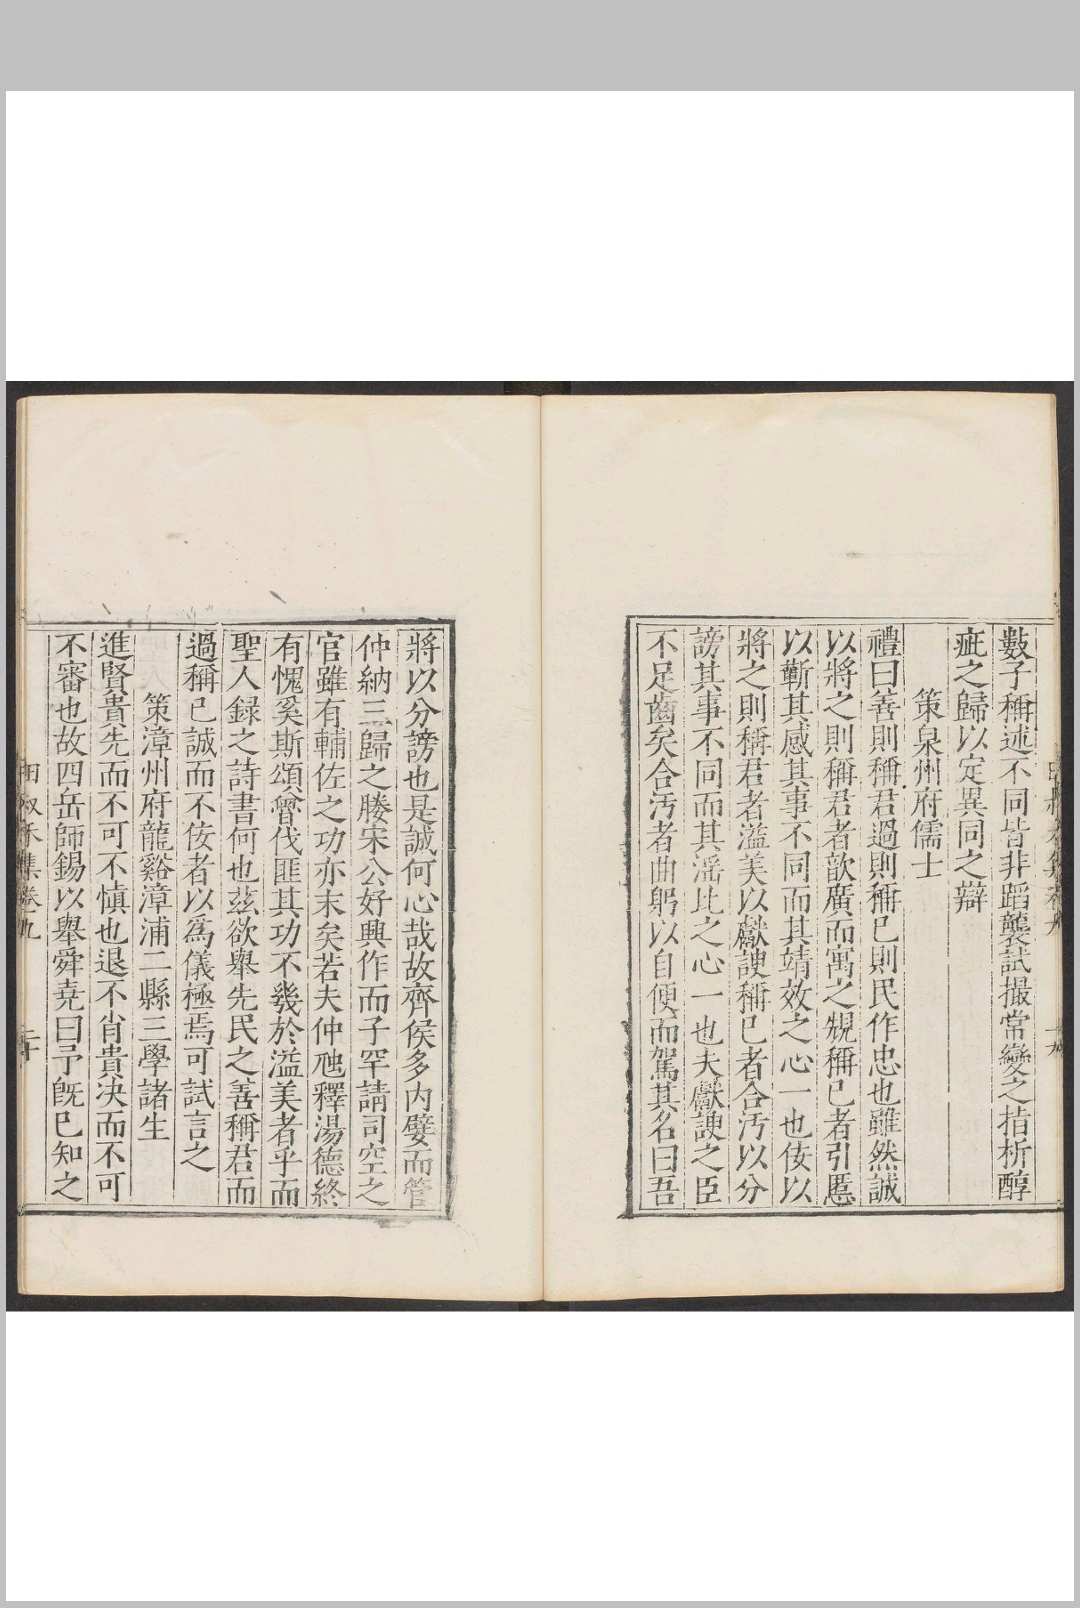 數子稱述不同皆非蹈襲試撮常變之指析醇
疵之歸以定異同之辯
策泉州府儒士
禮曰善則稱君過則稱已則民作忠也雖然誠
以將之則稱君者歆廣而寓之規稱已者引慝
以蘄其感其事不同而其靖效之心一也佞以
將之則稱君者溢美以獻諛稱已者合汚以分
謗其事不同而其滛比之心一也夫獻諛之臣
不足齒矣合汚者曲躬以自便而駕其名曰吾
將以分謗也是誠何心哉故齊侯多内嬖而管
仲納三歸之媵宋公好興作而子罕請司空之
官雖有輔佐之功亦末矣若夫仲虺釋湯德終
有愧奚斯頌魯伐匪其功不幾於溢美者乎而
聖人録之詩書何也茲欲舉先民之善稱君而
過稱已誠而不佞者以爲儀極焉可試言之
策漳州府龍谿漳浦二縣三學諸生
進賢貴先而不可不慎也退不肖貴决而不可
不審也故四岳師錫以舉舜堯曰予旣已知之
田叔禾集卷九
二十